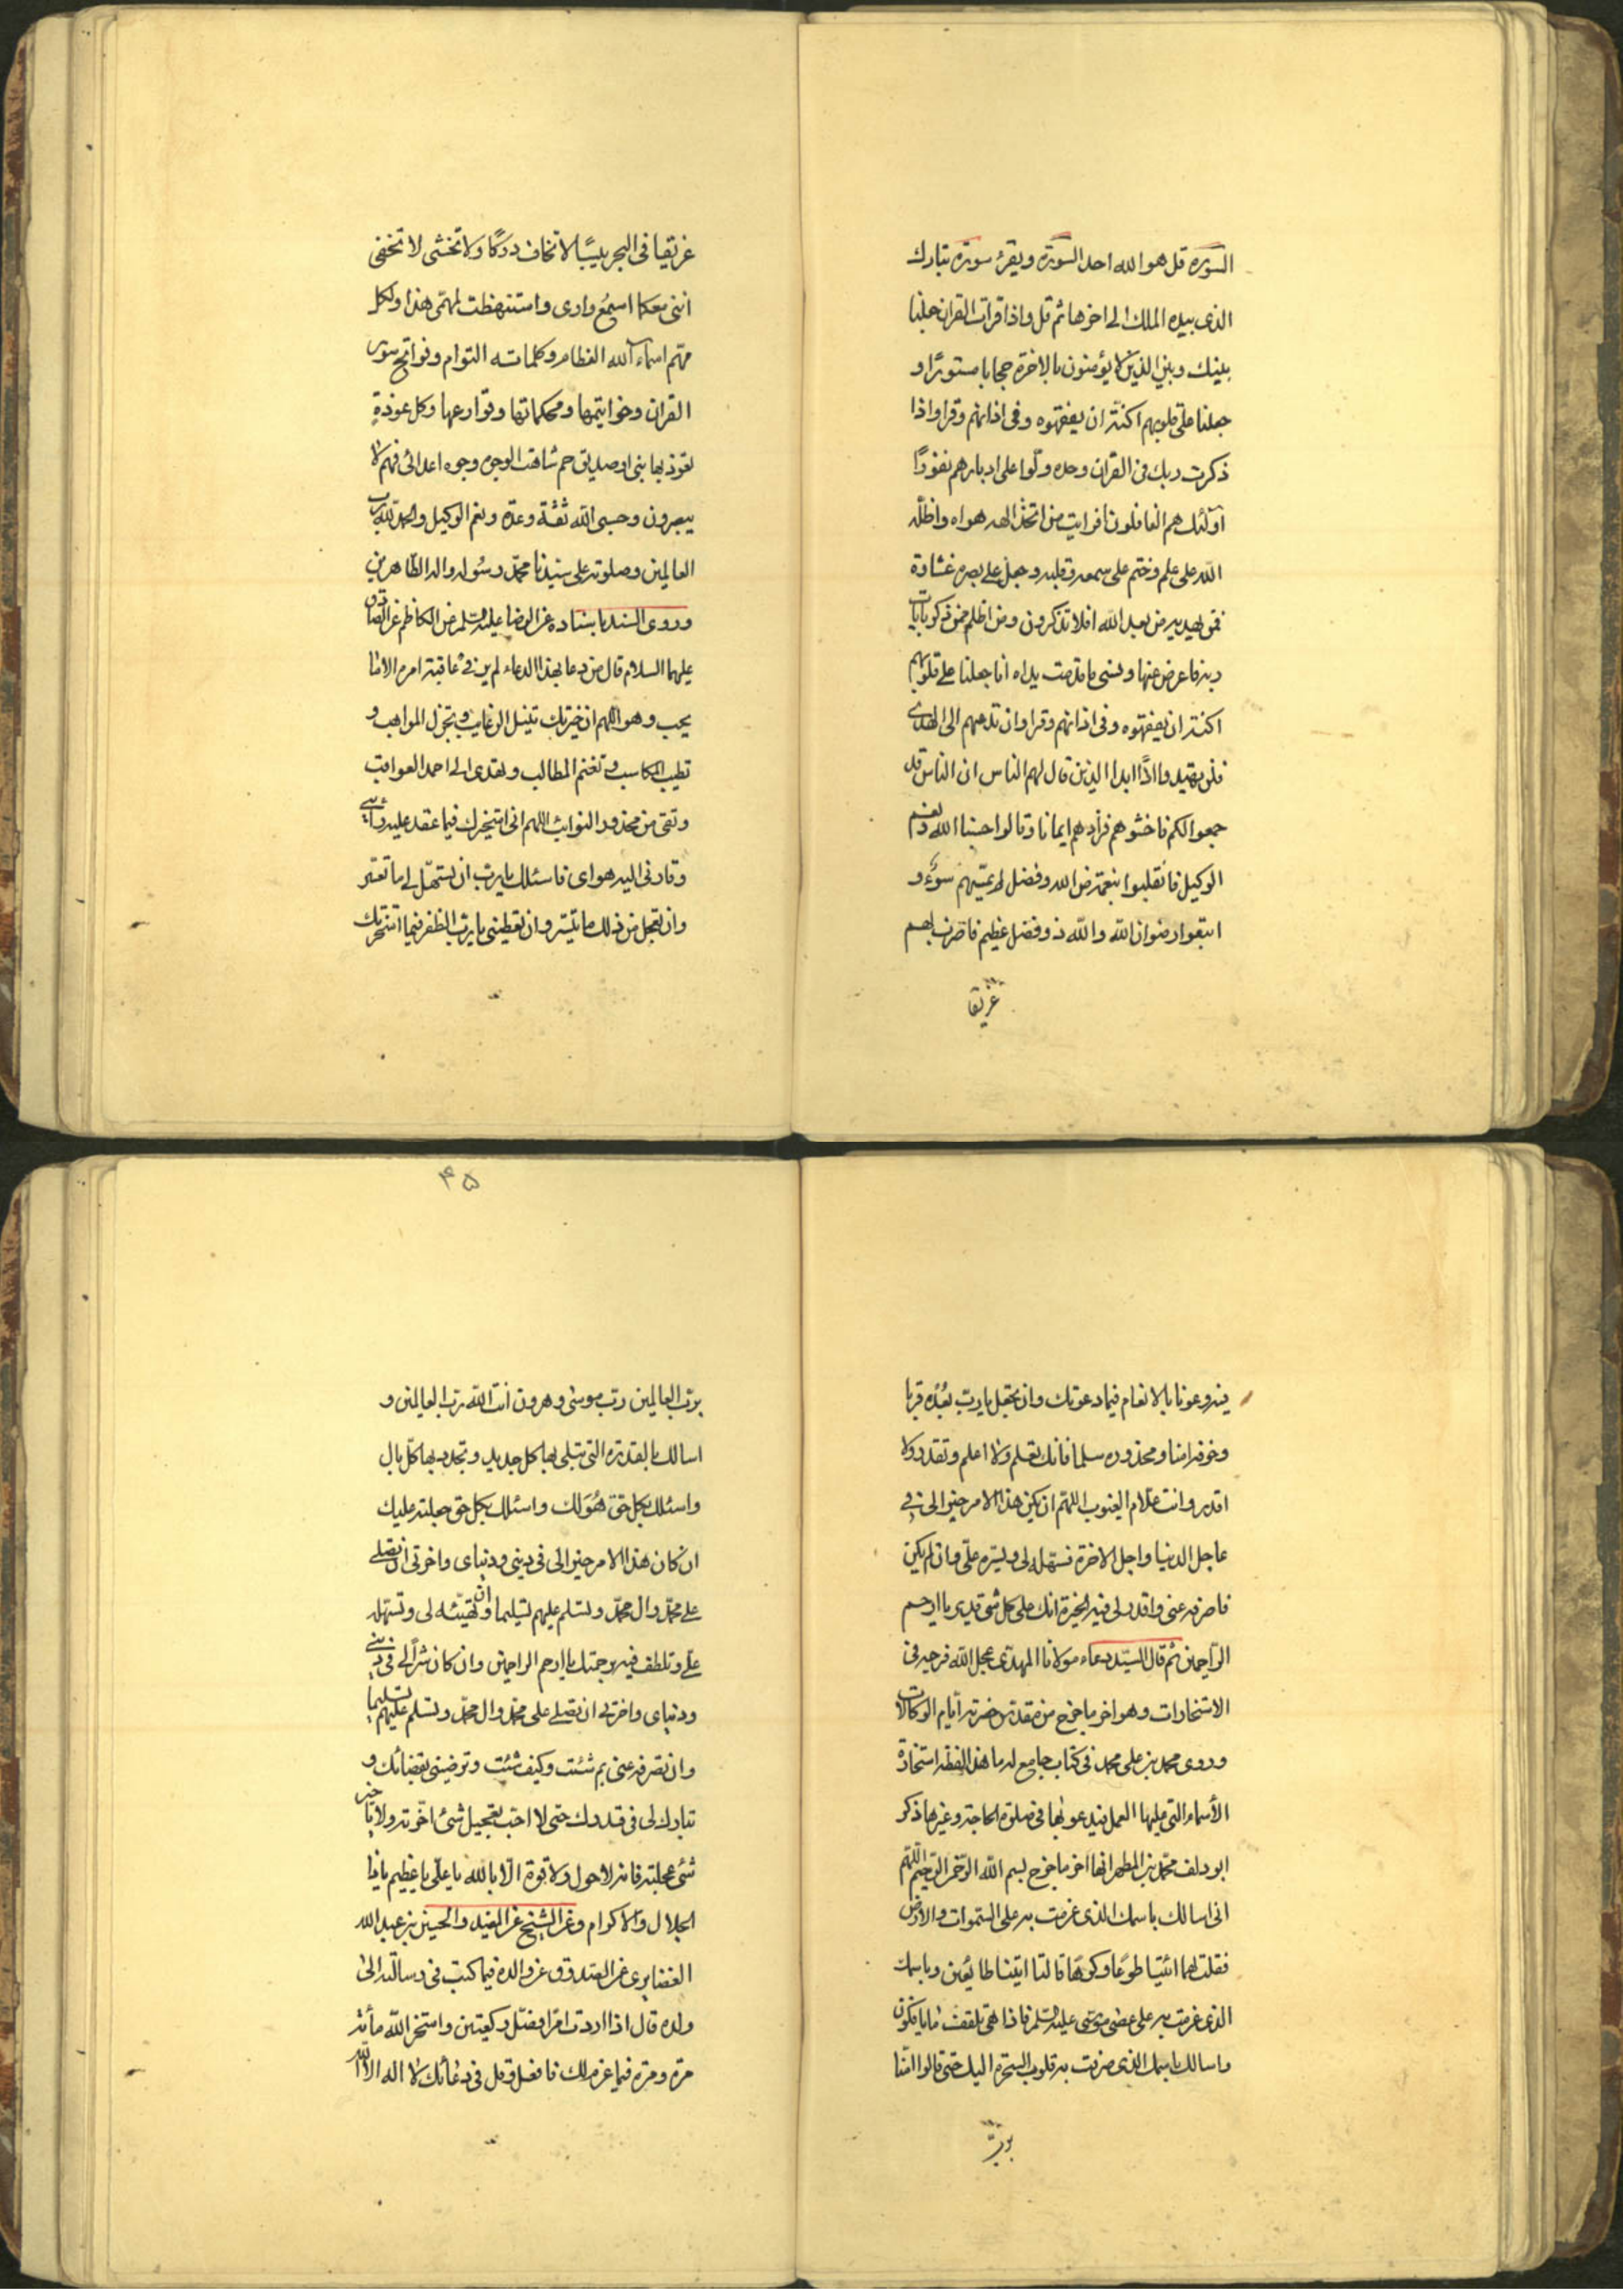 السورة قل هو الله احد السورة ويقرء سورة تبارك
الذى بيده الملك الى اخرها ثم قل واذا قرات القران جعلنا
بينك وبين الذين لا يؤمنون بالاخرة حجابا مستورًا و
جعلنا على قلوبهم اكنة ان يفقهوه وفى اذانهم وقرا واذا
ذكرت ربك فى القران وحده ولّوا على ادبارهم نفورًا
اولئك هم الغافلون افرايت من اتخذ الهه هواه واظلّه
الله على علم وختم على سمعه وقلبه وجعل على بصره غشاوة
فمن يهديه من بعد الله افلا تذكرون ومن اظلم ممن ذكر بايات
ربه فاعرض عنها ونسى ما قدمت يداه انا جعلنا على قلوبهم
اكنة ان يفقهوه وفى اذانهم وقرا وان تدعهم الى الهدى
فلن يهتدوا اذًا ابدا الذين قال لهم الناس ان الناس قد
جمعوا لكم فاخشوهم فزادهم ايمانا وقالوا حسبنا الله ونعم
الوكيل فانقلبوا بنعمة من الله وفضل لم يمسسهم سوء و
اتبعوا رضوان الله والله ذو فضل عظيم فاضرب لهم
غريقا
غريقا فى البحر يبسًا لا تخاف دركًا ولا تخشى لا تخفى
اننى معكما اسمع وارى واستنهظت لمهمّى هذا ولكل
مهّم اسماء الله العظام وكلماته التوام وفواتح سور
القران وخواتيمها ومحكماتها وقوارعها وكل عوذة
تعوذ بها نبى او صديق حم شاهت الوجوه وجوه اعدائى فهم لا
يبصرون وحسبى الله ثقة وعدّة ونعم الوكيل والحمد لله رب
العالمين وصلوته على سيدنا محمّد رسوله واله الطّاهرين
وروى السند باسناده عن الرضا عليه السّلم عن الكاظم عن الصّادق
عليهما السلام قال من دعا بهذا الدعاء لم ير فى عاقبة امره الا ما
يحب وهو اللهم ان خيرتك تنيل الرغايب وتجزل المواهب و
تطيب المكاسب وتغنم المطالب وتهدى الى احمد العواقب
وتقى من محذور النوايب اللهم انى استخيرك فيما عقد عليه رأيى
وقادنى اليه هواى فاسئلك يا رب ان تسهّل لى ما تعسّر
وان تعجل من ذلك ما تيسّر وان تعطينى يا رب الظفر فيما استخرتك
فيه وعونا بالانعام فيما دعوتك وان تجعل يا رب بُعده قربا
وخوفه امنا ومحذوره سلما فانك تعلم ولا اعلم وتقدر ولا
اقدر وانت علام الغيوب اللهم ان يكن هذا الامر خيرا لى فى
عاجل الدنيا واجل الاخرة فسهله لى ويسره علّى وان لم يكن
فاصرفه عنى واقدر لى فيه الخيرة انك على كل شئ قدير يا ارحم
الرّاحمين ثم قال السيّد دعاء مولانا المهدّى عجل الله فرجه فى
الاستخارات وهو اخر ما خرج من مقدّس حضرته أيام الوكالات
وروى محمد بن على محمد فى كتاب جامع له ما هذا لفظه استخارة
الأسماء التى عليها العمل فيدعو بها فى صلوة الحاجة وغيرها ذكر
ابو دلف محمّد بن المطهر انها اخر ما خرج بسم الله الرّحمن الرّحيم اللهم
انى اسالك باسمك الذى عزمت به على السّموات والارض
فقلت لهما ائتيا طوعًا وكرهًا قالتا اتينا طائعين وباسمك
الذى عزمت به على عصى موسى عليه السّلم فاذا هى تلقف ما يافكون
واسالك باسمك الذى صرفت به قلوب السحرة اليك حتى قالوا امنّا
بربّ
۴۵
برب العالمين رب موسى وهرون انت الله رب العالمين و
اسالك بالقدرة التى تبلى بها كل جديد وتجدد بها كل بال
واسئلك بكل حق هُوَ لك واسئلك بكل حق جعلته عليك
ان كان هذا الامر خيرا لى فى دينى ودنياى واخرتى ان تصلى
على محمّد وال محمّد وتسلم عليهم تسليما وان تهيّئه لى وتسهله
علّى وتلطف فيه برحمتك يا ارحم الراحمين وان كان شرًا لى فى دينى
ودنياى واخرتى ان تصلى على محمّد وال محمّد وتسلم عليهم تسليما
وان تصرفه عنى بم شئت وكيف شئت وترضينى بقضائك و
تبارك لى فى قدرك حتى لا احب تعجيل شئ اخّرته ولا تاخير
شئ عجلته فانه لا حول ولا قوة الّا بالله يا علّى يا عظيم يا ذا
الجلال والاكرام وعن الشيخ عن المفيد والحسين بن عبد الله
الغضايرى عن الصدوق عن والده فيما كتب فى رسالته الى
ولده قال اذا اردت امرًا فصّل ركعتين واستخر الله مأته
مرّة ومرّة فيما عزم لك فافعل وقل فى دعائك لا اله الا الله